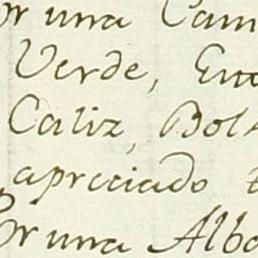 or una Cam
Verde, En
Caliz, Bols
apreciado
Por una Alba